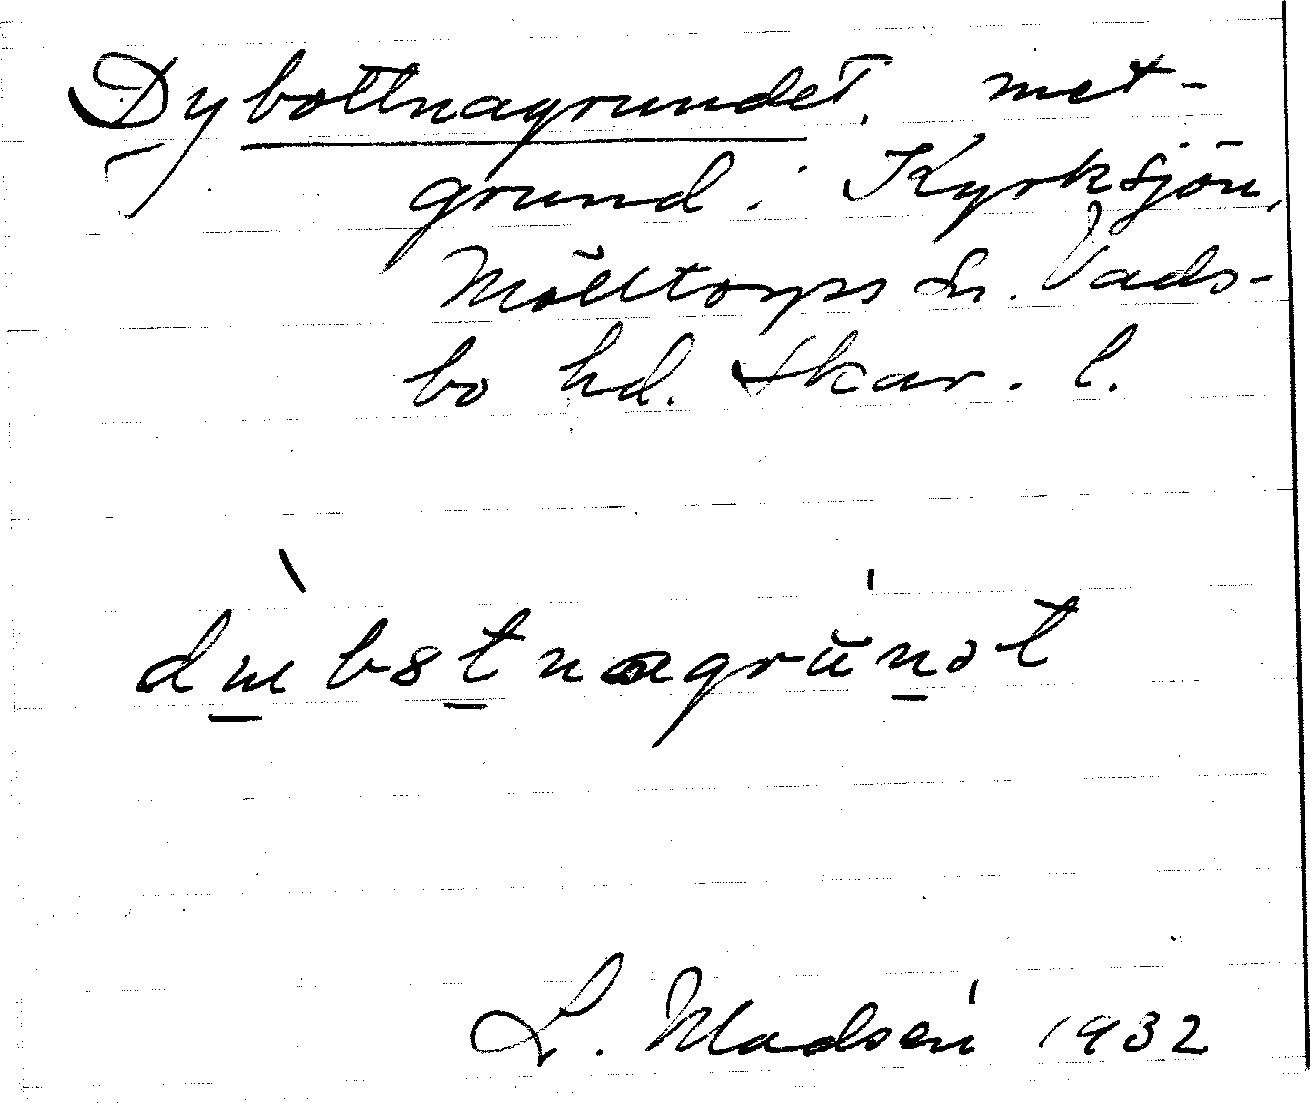 Dybottnagrundet, met-
grund i Kyrksjön,
Mölltorps sn. Vads-
bo hd. Skar. l.
L. Madsén 1932